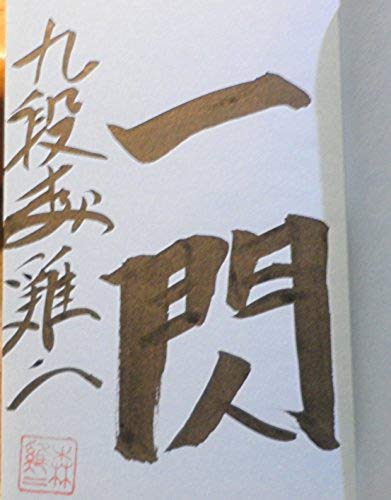 一閃
九段森雞二
森
雞二